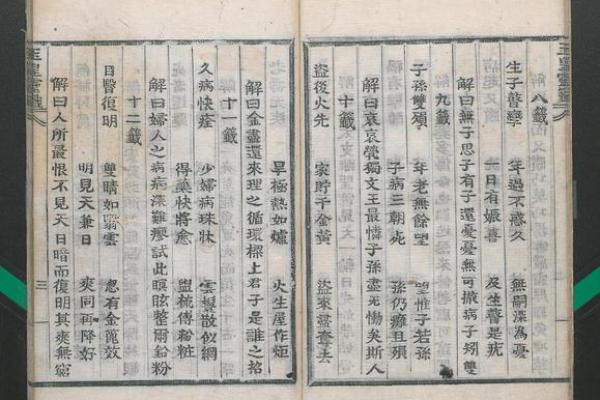 八籤
生子瞽孿 年過不惑久 無嗣深為憂
一日有娠喜 及生瞽是疣
解曰無子思子有子還憂憂無可撤病子矧雙
九籤
子孫雙殞 年老無餘望 望惟子若孫
子病三朝死 孫仍癱且殞
解曰哀哀煢獨文王最憐子孫盡死慟矣斯人
十籤
盜後火先 家貯千金黃 盜來盡奪去
旱極熱如爐 火生屋作炬
解曰金盡還來理之循環樑上君子是誰之招
十一籤
久病快痊 少婦病珠牀 雲鬟散似網
得藥快將愈 盥梳傅粉粧
解曰婦人之病病深難瘳試此瞑眩整爾鉛粉
十二籤
目瞖復明 雙睛如翳雲 忽有金篦效
明見天兼日 爽同再降好
解曰人所最恨不見天日暗而復明其爽無窮
三